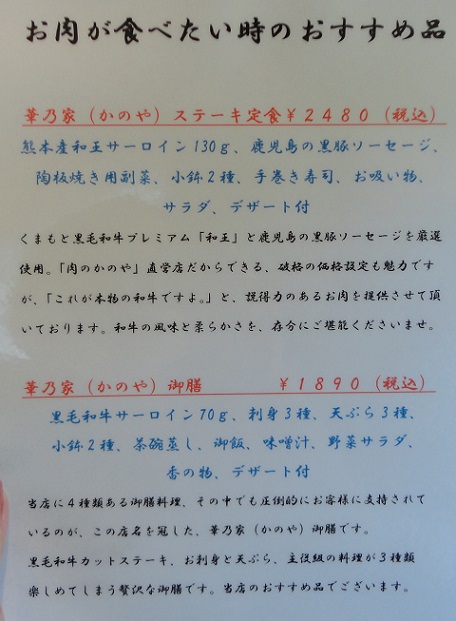 お肉が食べたい時のおすすめ品
華乃家（かのや）ステーキ定食￥２４８０（税込）
熊本産和王サーロイン130ｇ、鹿児島の黒豚ソーセージ、
陶板焼き用副菜、小鉢２種、手巻き寿司、お吸い物、
サラダ、デザート付
くまもと黒毛和牛プレミアム「和王」と鹿児島の黒豚ソーセージを厳選
使用。「肉のかのや」直営店だからできる、破格の価格設定も魅力です
が、「これが本物の和牛ですよ。」と、説得力のあるお肉を提供させて頂
いております。和牛の風味と柔らかさを、存分にご堪能くださいませ。
華乃家（かのや）御膳　　　￥１８９０（税込）
黒毛和牛サーロイン70ｇ、刺身３種、天ぷら３種、
小鉢２種、茶碗蒸し、御飯、味噌汁、野菜サラダ、
香の物、デザート付
当店に４種類ある御膳料理、その中でも圧倒的にお客様に支持されて
いるのが、この店名を冠した、華乃家（かのや）御膳です。
黒毛和牛カットステーキ、お刺身と天ぷら、主役級の料理が３種類
楽しめてしまう贅沢な御膳です。当店のおすすめ品でございます。